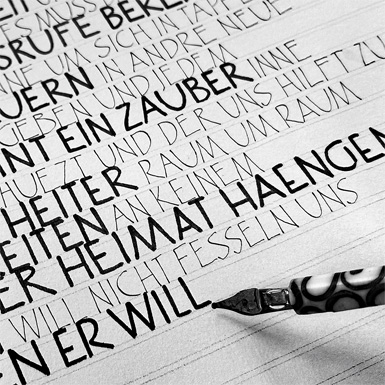 ES MUSS
SRUFE
UM SICH IN TAPFE
UERN IN ANDRE NEUE
GEBEN UND IN JEDEM
NT EIN ZAUBER INNE
UND DER UNS HILFT ZU
HEITER RAUM UM RAUM
EITEN AN KEINEM
ER HEIMAT HAENGEN
WILL NICHT FESSELN UNS
EN ER WILL